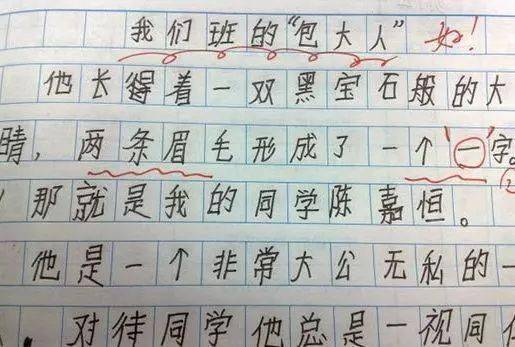 我们班的“包大人” 好！
他长得着一双黑宝石般的大
睛，两条眉毛形成了一个'一'字。
那就是我的同学陈嘉恒。
他是一个非常大公无私的一
对待同学他总是一视同